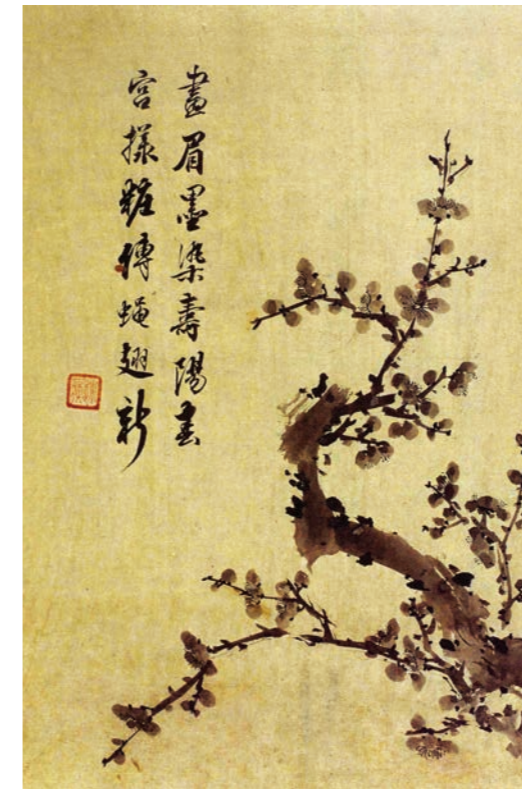 畫眉墨染壽陽春
宮樣粧傳蟬翅新